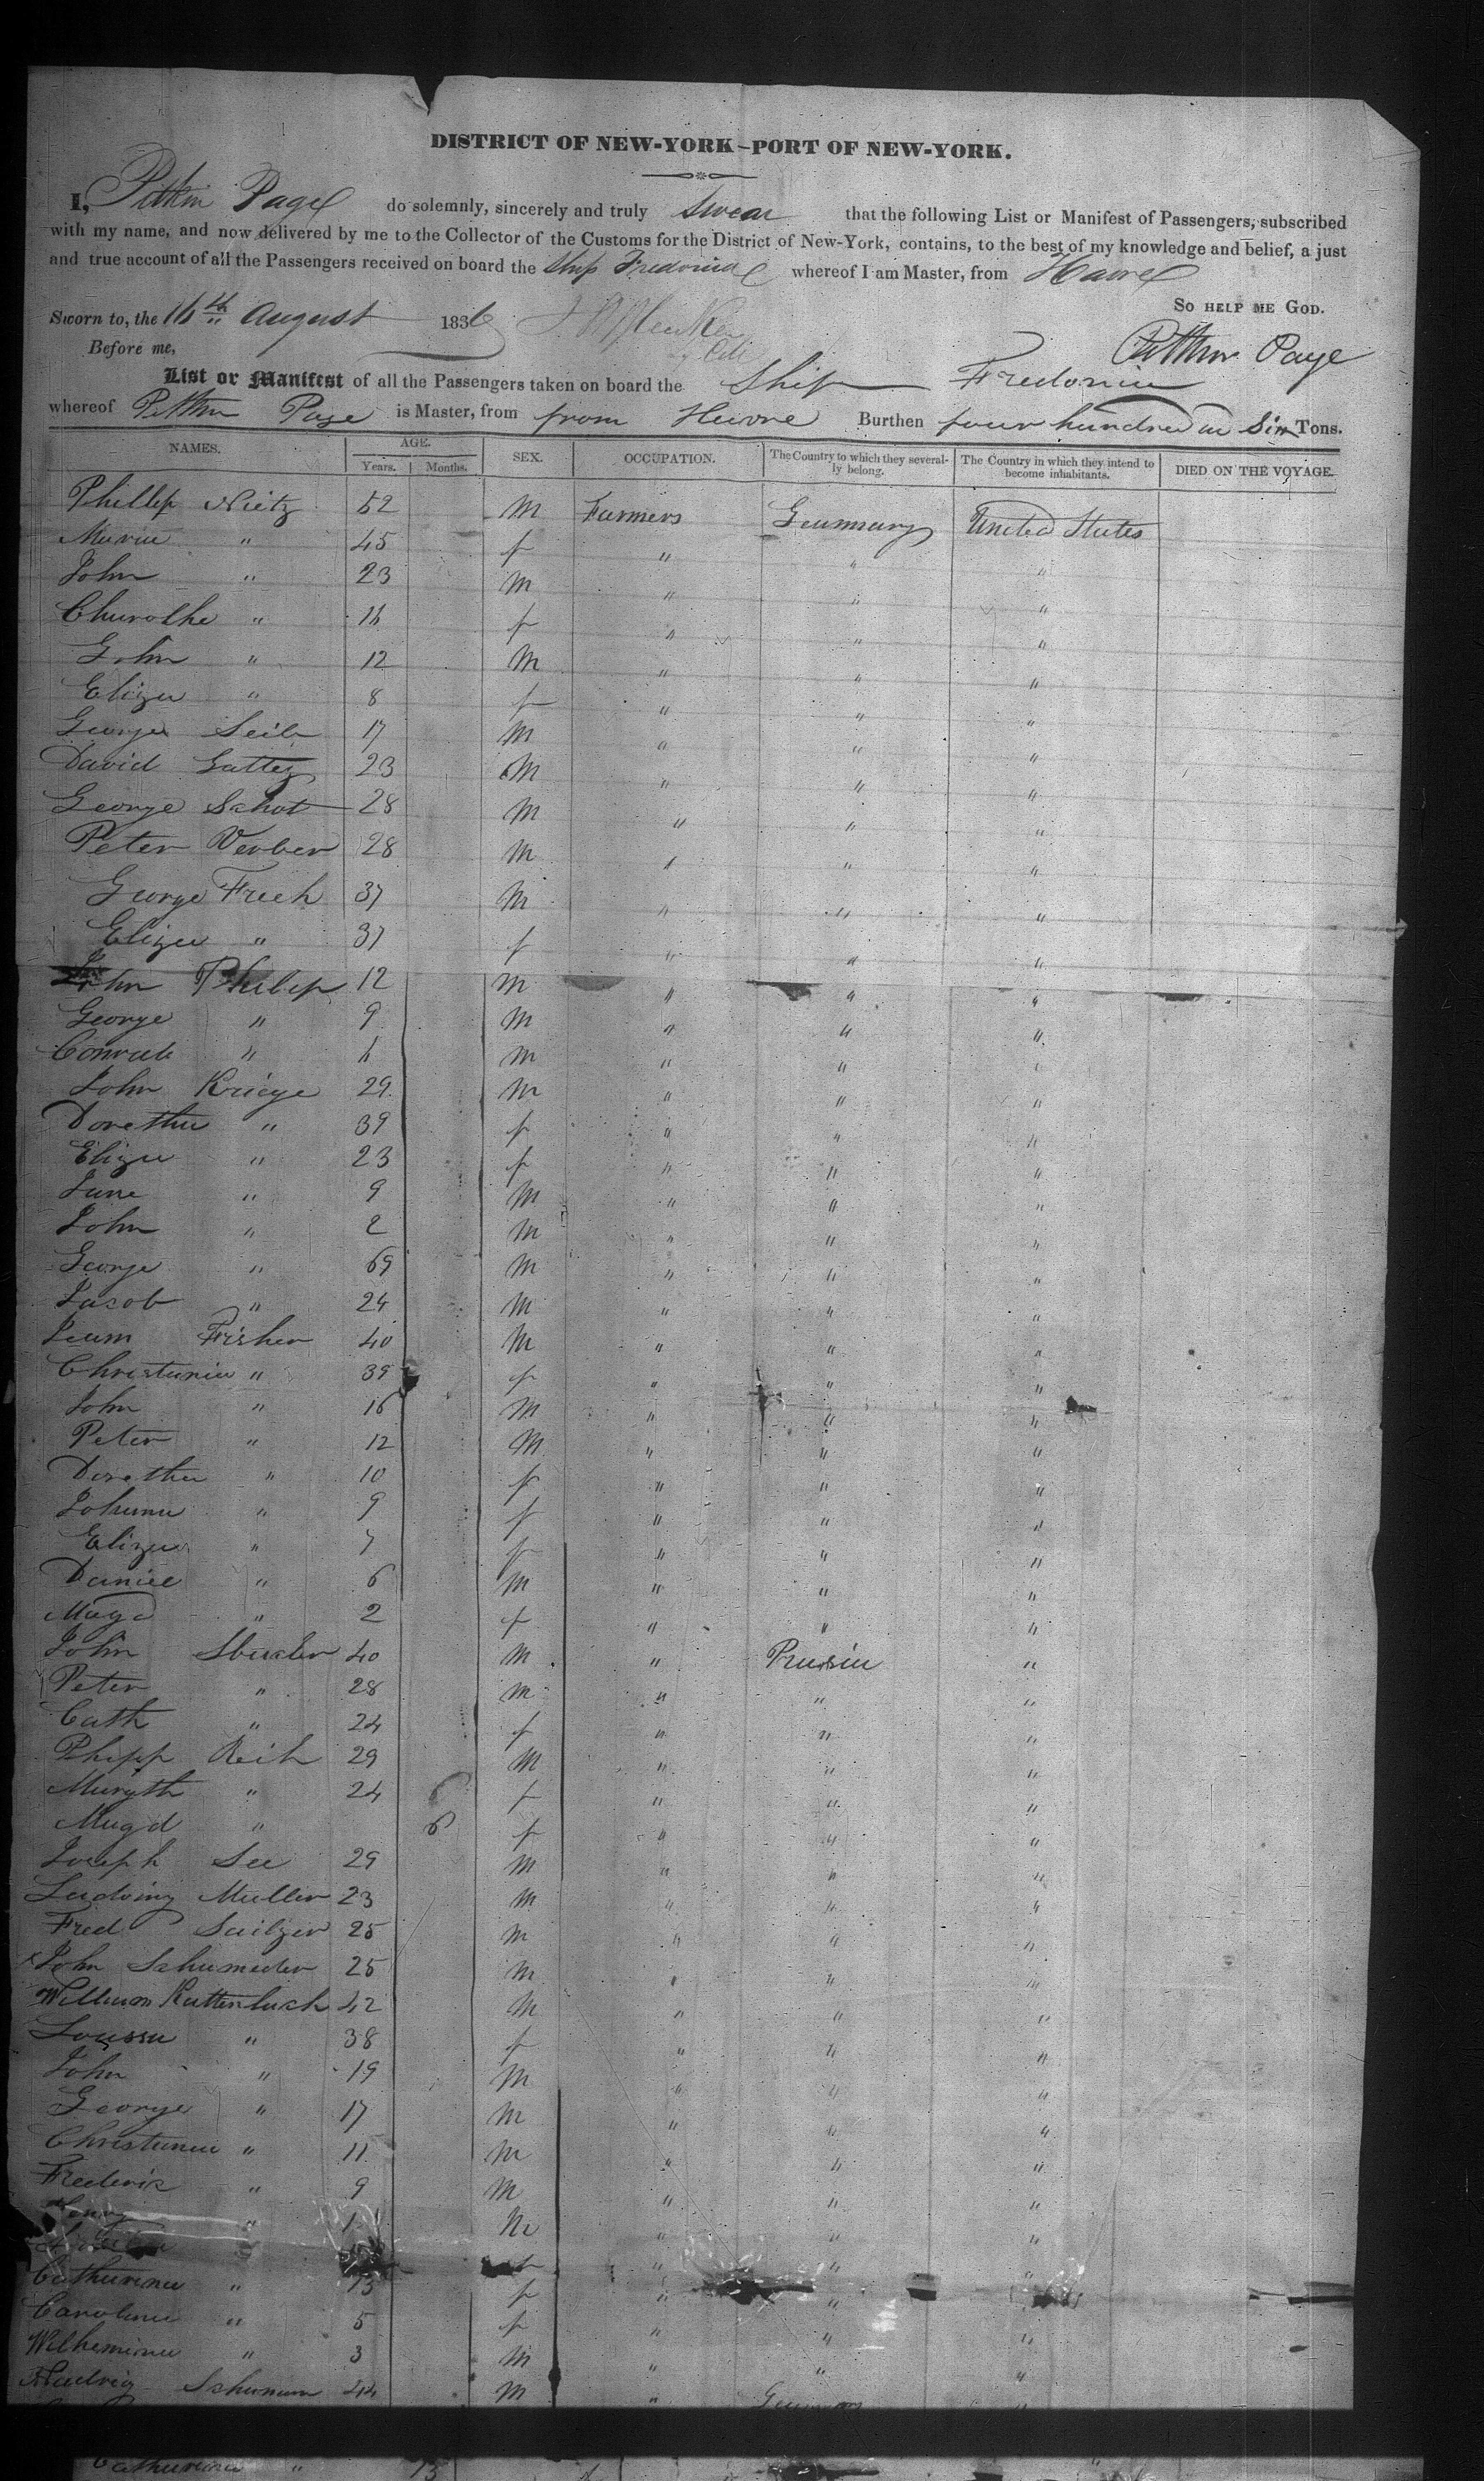 DISTRICT OF NEW-YORK–PORT OF NEW-YORK.
I, Pitkin Page do solemnly, sincerely and truly swear that the following List or Manifest of Passengers, subscribed
with my name, and now delivered by me to the Collector of the Customs for the District of New-York, contains, to the best of my knowledge and belief, a just
and true account of all the Passengers received on board the Ship Fredonia whereof I am Master, from Havre
So help me God.
Sworn to, the 16th August 1836
Pitkin Page
Before me,
List or Manifest of all the Passengers taken on board the Ship Fredonia
whereof Pitkin Page is Master, from from Havre Burthen four hundred Tons.
NAMES. AGE. SEX. OCCUPATION. The Country to which they severally belong. The Country in which they intend to become inhabitants. DIED ON THE VOYAGE.
Years. Months.
Phillip Nietz 52 M Farmers Germany United States
Maria " 45 f " " "
John " 23 M " " "
" 16 f " " "
John " 12 M " " "
Eliza " 8 f " " "
George Seib 17 M " " "
David Gattez 23 M " " "
George Schot 28 M " " "
Peter Verber 28 M " " "
George Frech 37 M " " "
Eliza " 37 f " " "
John Philip 12 M " " "
George " 9 M " " "
Conrad " 6 M " " "
John Kriege 29 M " " "
Doretha " 39 f " " "
Eliza " 23 f " " "
Jane " 9 M " " "
John " 2 M " " "
George " 69 M " " "
Jacob " 24 M " " "
Fisher 40 M " " "
Christania " 39 f " " "
John " 16 M " " "
Peter " 12 M " " "
Doretha " 10 f " " "
Johanna " 9 f " " "
Eliza " 7 f " " "
Daniel " 6 M " " "
Magd " 2 f " " "
John 40 M " Prussia "
Peter " 28 M " " "
Cath " 24 f " " "
Phipp Reih 29 M " " "
Margth " 24 f " " "
Magd " 6 f " " "
Joseph See 29 M " " "
Ludwing Muller 23 M " " "
Fred Sailzer 25 M " " "
x John Schumeder 25 M " " "
William Kattenbach 42 M " " "
Loussa " 38 f " " "
John " 19 M " " "
George " 17 M " " "
Christania " 11 M " " "
Frederik " 9 M " " "
Henry " M " " "
" " "
Catharina " 13 f " " "
Carolina " 5 f " " "
Wilhemina " 3 M " " "
Schumam 44 M " Germany "
Catharina " 13